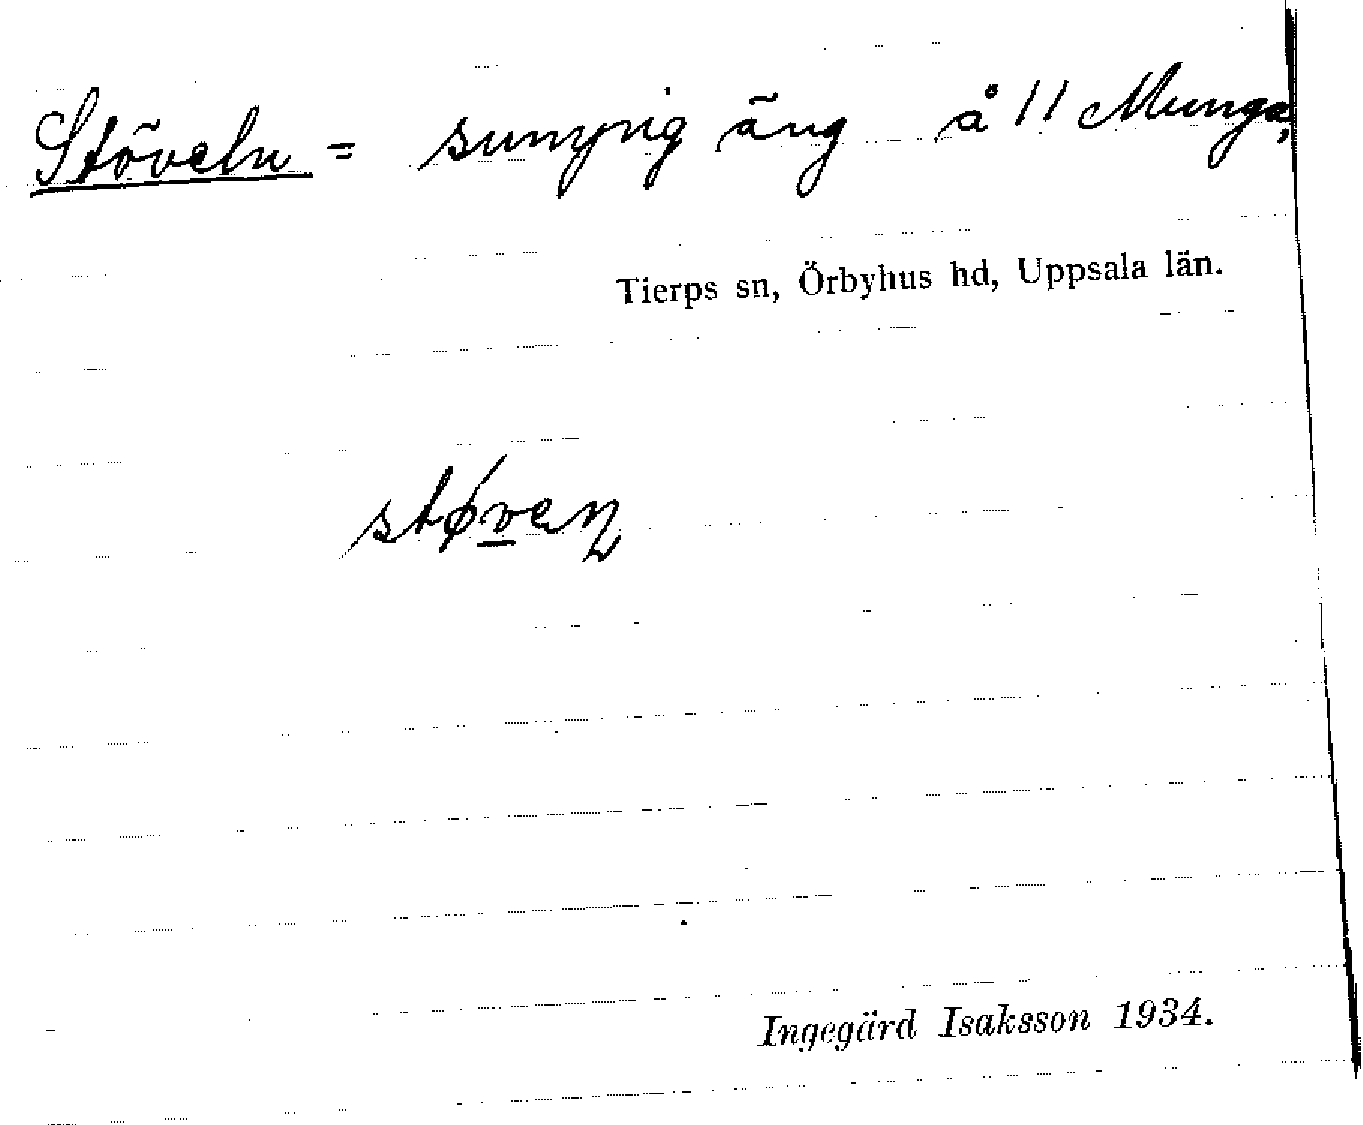 Stöveln = sumpig äng å 11 Munga,
Tierps sn, Örbyhus hd, Uppsala län.
Ingegärd Isaksson 1934.